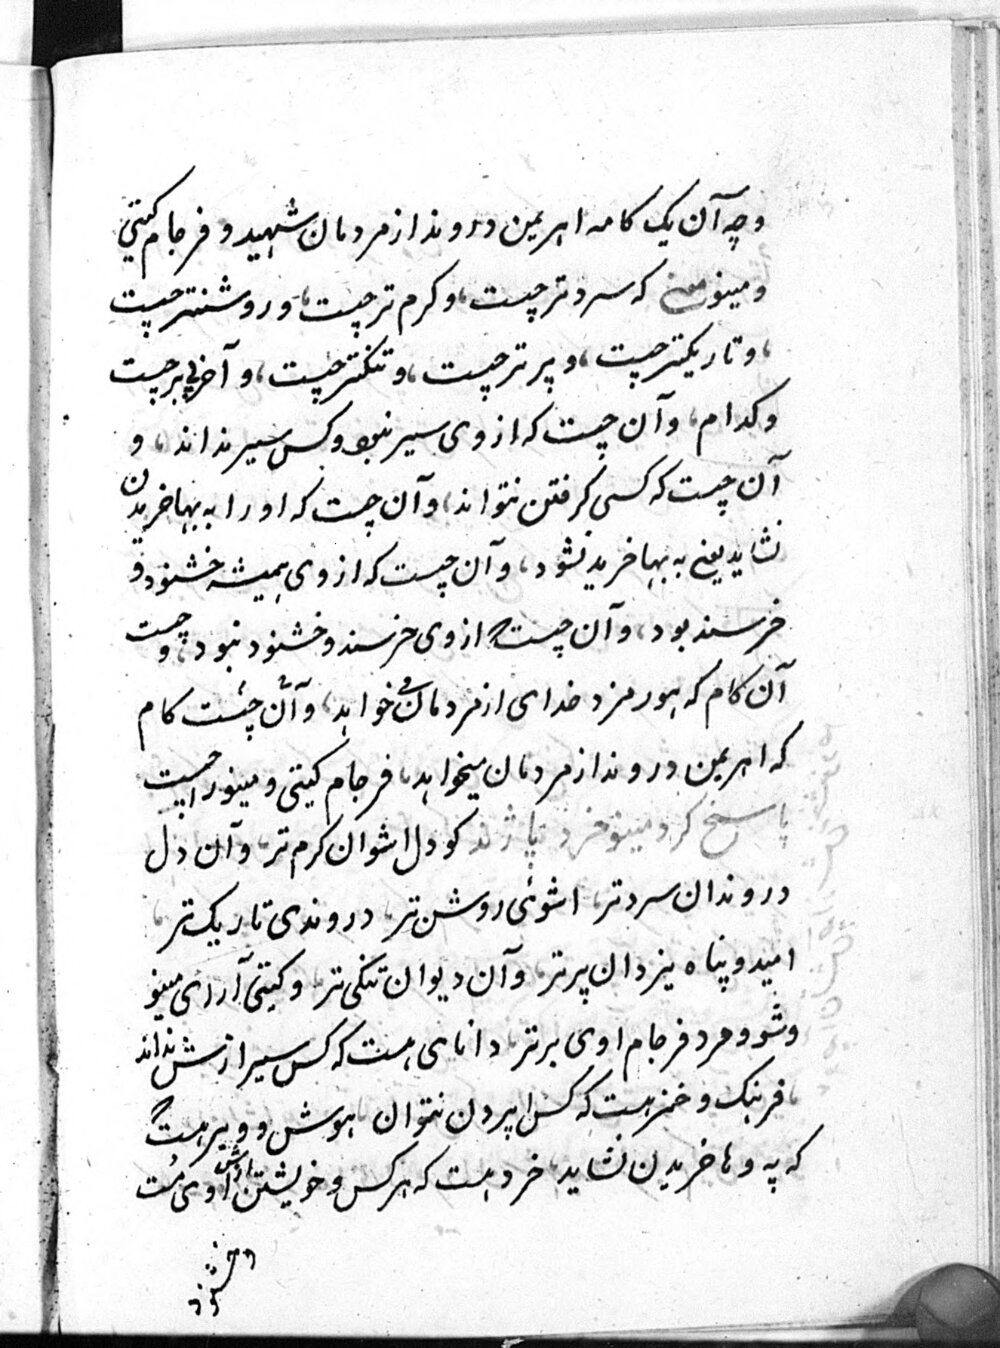 وچه آن یک کامه اهریمن دروند از مردمان شهید و فرجام کیتی
ومینو که سردتر چیست، وکرم تر چیست، وروشنتر چیست
، وتاریکتر چیست، وپرتر چیست، وتنکتر چیست، و آخر بی بر چیست
وکدام، وآن چیست که از وی سیر نبود وکس سیر نداند، و
آن چیست که کسی کرفتن نتواند، وآن چیست که اورا به بها خریدن
نشاید یعنی به بها خرید نشود، وآن چیست که از وی همیشه خشنود و
خرسند بود، وآن چیست که از وی خرسند وخشنود نبود، وچیست
آن کام که هورمزد خدای از مردمان می خواهد، وآن چیست کام
که اهریمن دروند از مردمان میخواهد، فرجام کیتی ومینورا چیست
پاسخ کرد مینوخرد پاژند کو دل اشوان کرم تر، وآن دل
دروندان سردتر، اشوئی روشن تر، دروندی تاریک تر،
امید وپناه یزدان پرتر، وآن دیوان تنکی تر، وکیتی آرای مینو
فرجام اوی برتر، دانای هست که کس سیر ازش نداند
، فرهنک وهنر هست که کس اپردن نتوان، هوش وویر هست
که په وها خریدن نشاید، خرد هست که هر کس وخویشتن اوی هست
خشنود